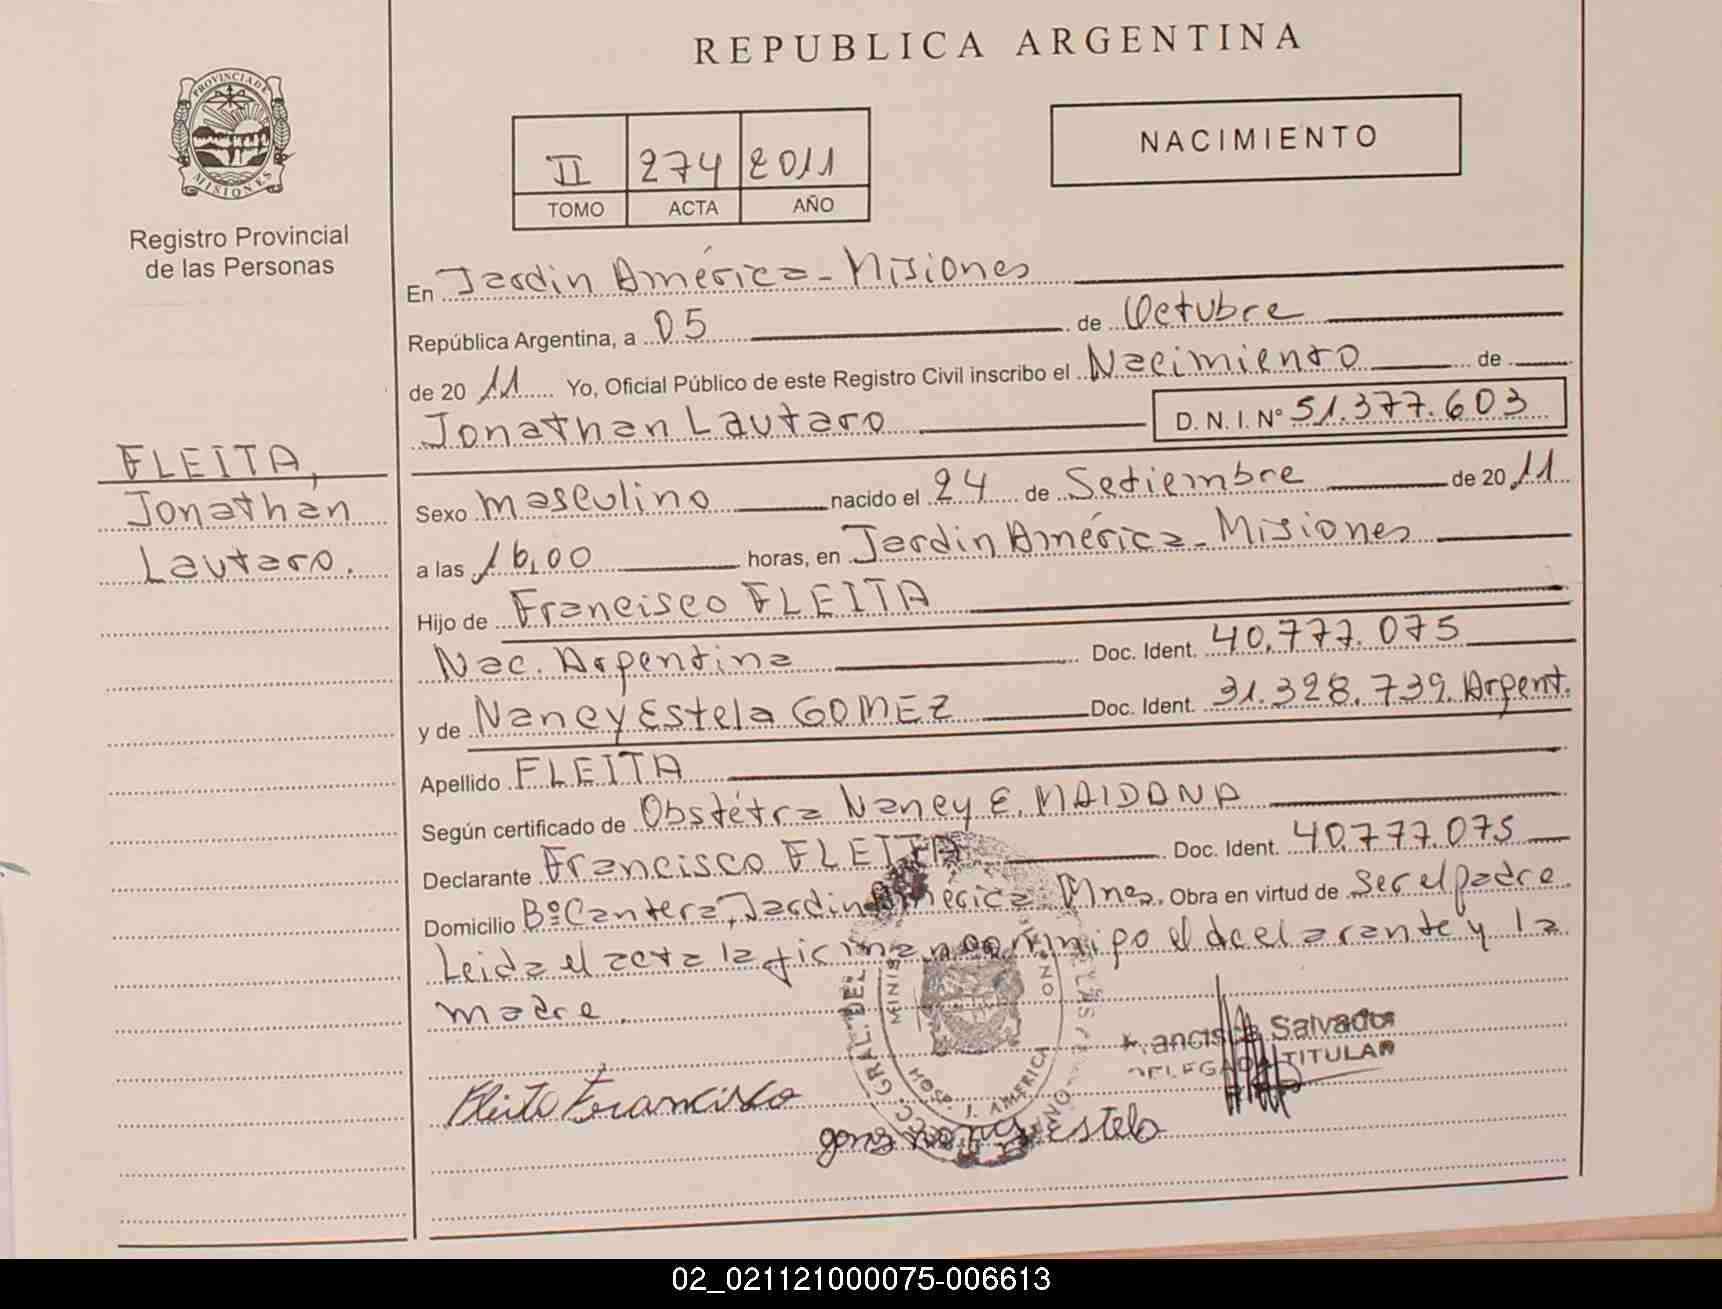 REPUBLICA ARGENTINA
PROVINCIA DE
MISIONES
Registro Provincial
de las Personas
NACIMIENTO
II 274 2011
TOMO ACTA AÑO
FLEITA,
Jonathán
Lautaro.
En Jardin América - Misiones
República Argentina, a 05 de Octubre
de 20 11 Yo, Oficial Público de este Registro Civil inscribo el Nacimiento de
Jonathan Lautaro D. N. I. Nº 51.377.603
Sexo masculino nacido el 24 de Setiembre de 20 11
a las 16,00 horas, en Jardin América - Misiones
Hijo de Francisco FLEITA
Nac. Argentina Doc. Ident. 40.777.075
y de Nancy Estela GOMEZ Doc. Ident. 31.328.739. Argent.
Apellido FLEITA
Según certificado de Obstétra Nancy E. MAIDANA
Declarante Francisco FLEITA Doc. Ident. 40.777.075
Domicilio Bº Cantera, Jardin América Mnes. Obra en virtud de ser el padre
Leida el acta la firman conmigo el declarante y la
madre.
Francisca Salvador
DELEGADA TITULAR
Fleita Francisco
Estela
GRAL. DEL
MINIS
HOSP. J. AMERICA
02_021121000075-006613